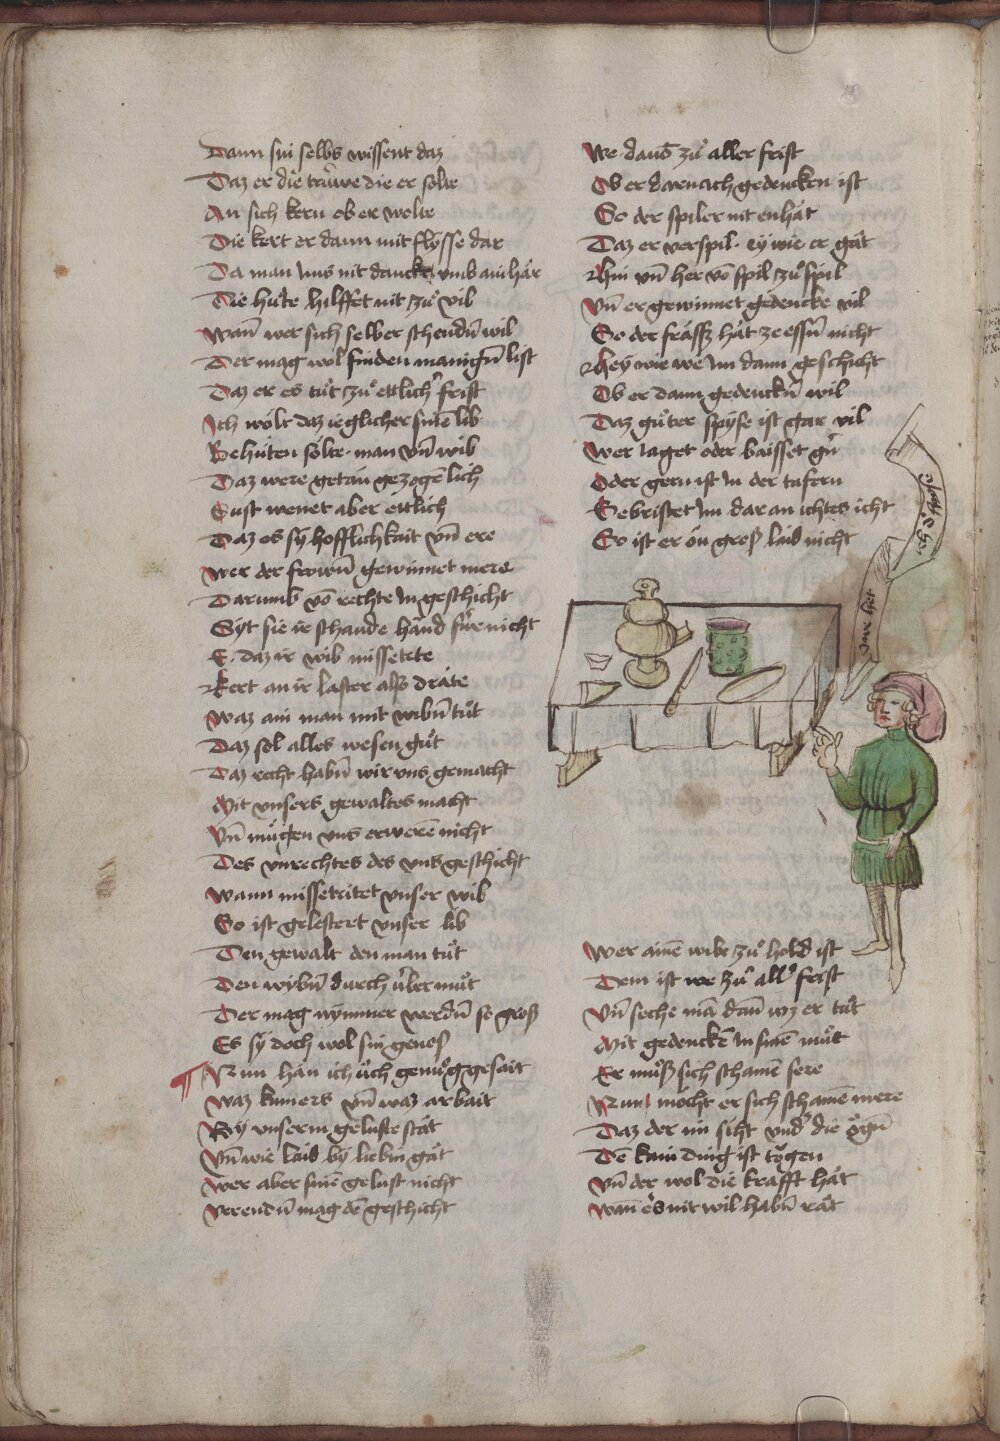 Dann sin selbs wissent daz
Daz er die trüwe die er solte
An sich kern ob er wolte
Die kert er dann mit flysse dar
Da man jms nit danckt vmb ain här
Die hůte hilffet nit zů vil
Wan̄ wer sich selber schendn̄ wil
Der mag wol finden manign̄ list
Daz er es tůt zů ettlich' frist
Ich wölt daz ieglicher sinē lib
Behüten sölte man vn̄ wib
Daz were getän gezogēlich
Sust wenet aber ettlich
Daz es sy hofflichkait vn̄ ere
Wer der frown̄ gewinnet mere
Darumb vō rechte jn geschicht
Syt sie ir schande hānd für nicht
E daz ir wib missetete
kert an ir laster also dräte
Waz ain man mit wibn̄ tůt
Daz sol alles wesen gůt
Daz recht habn̄ wir vns gemacht
Mit vnsers gewaltes macht
Vn̄ mügen vns erwerē nicht
Des vnrechtes des vns geschicht
Wann missetritet vnser wib
So ist gelestert vnser lib
Den gewalt den man tůt
Den wybn̄ durch übermůt
Der mag nymmer werdn̄ so groß
Es sy doch wol sin genoß
Nun hän ich üch genůg gesait
Waz kumers vn̄ waz arbait
By vnserm geluste stät
Vn̄ wie laid by liebin gät
Wer aber sinē gelust nicht
Verendn̄ mag dē geschicht
We dauō zů aller frist
Ob er darnach gedencken ist
So der spiler nit enhät
Daz er verspil ey wie er gät
Hin vn̄ her vō spil zů spil
Vn̄ er gewinnet gedencke vil
So der fräsß hät ze essn̄ nicht
Hey wie we jm dann geschicht
Ob er dann gedenckn̄ wil
Daz gůter spyse ist gar vil
Wer iaget oder baisset gn̄
Oder gern ist jn der tafern
Gebristet jm daran ichtes icht
So ist er ön groß laid nicht
Wer ainē wibe zů hold ist
Dem ist we zů all' frist
Vn̄ seche mā dan̄ wz er tůt
Mit gedenckē jn sinē můt
Er můß sich schamē sere
Nun mocht er sich schamē mere
Daz der im siht vnd' die ögn̄
Dē kain ding ist tögen
Vn̄ der wol die krafft hät
Wan̄ es nit wil habn̄ rät